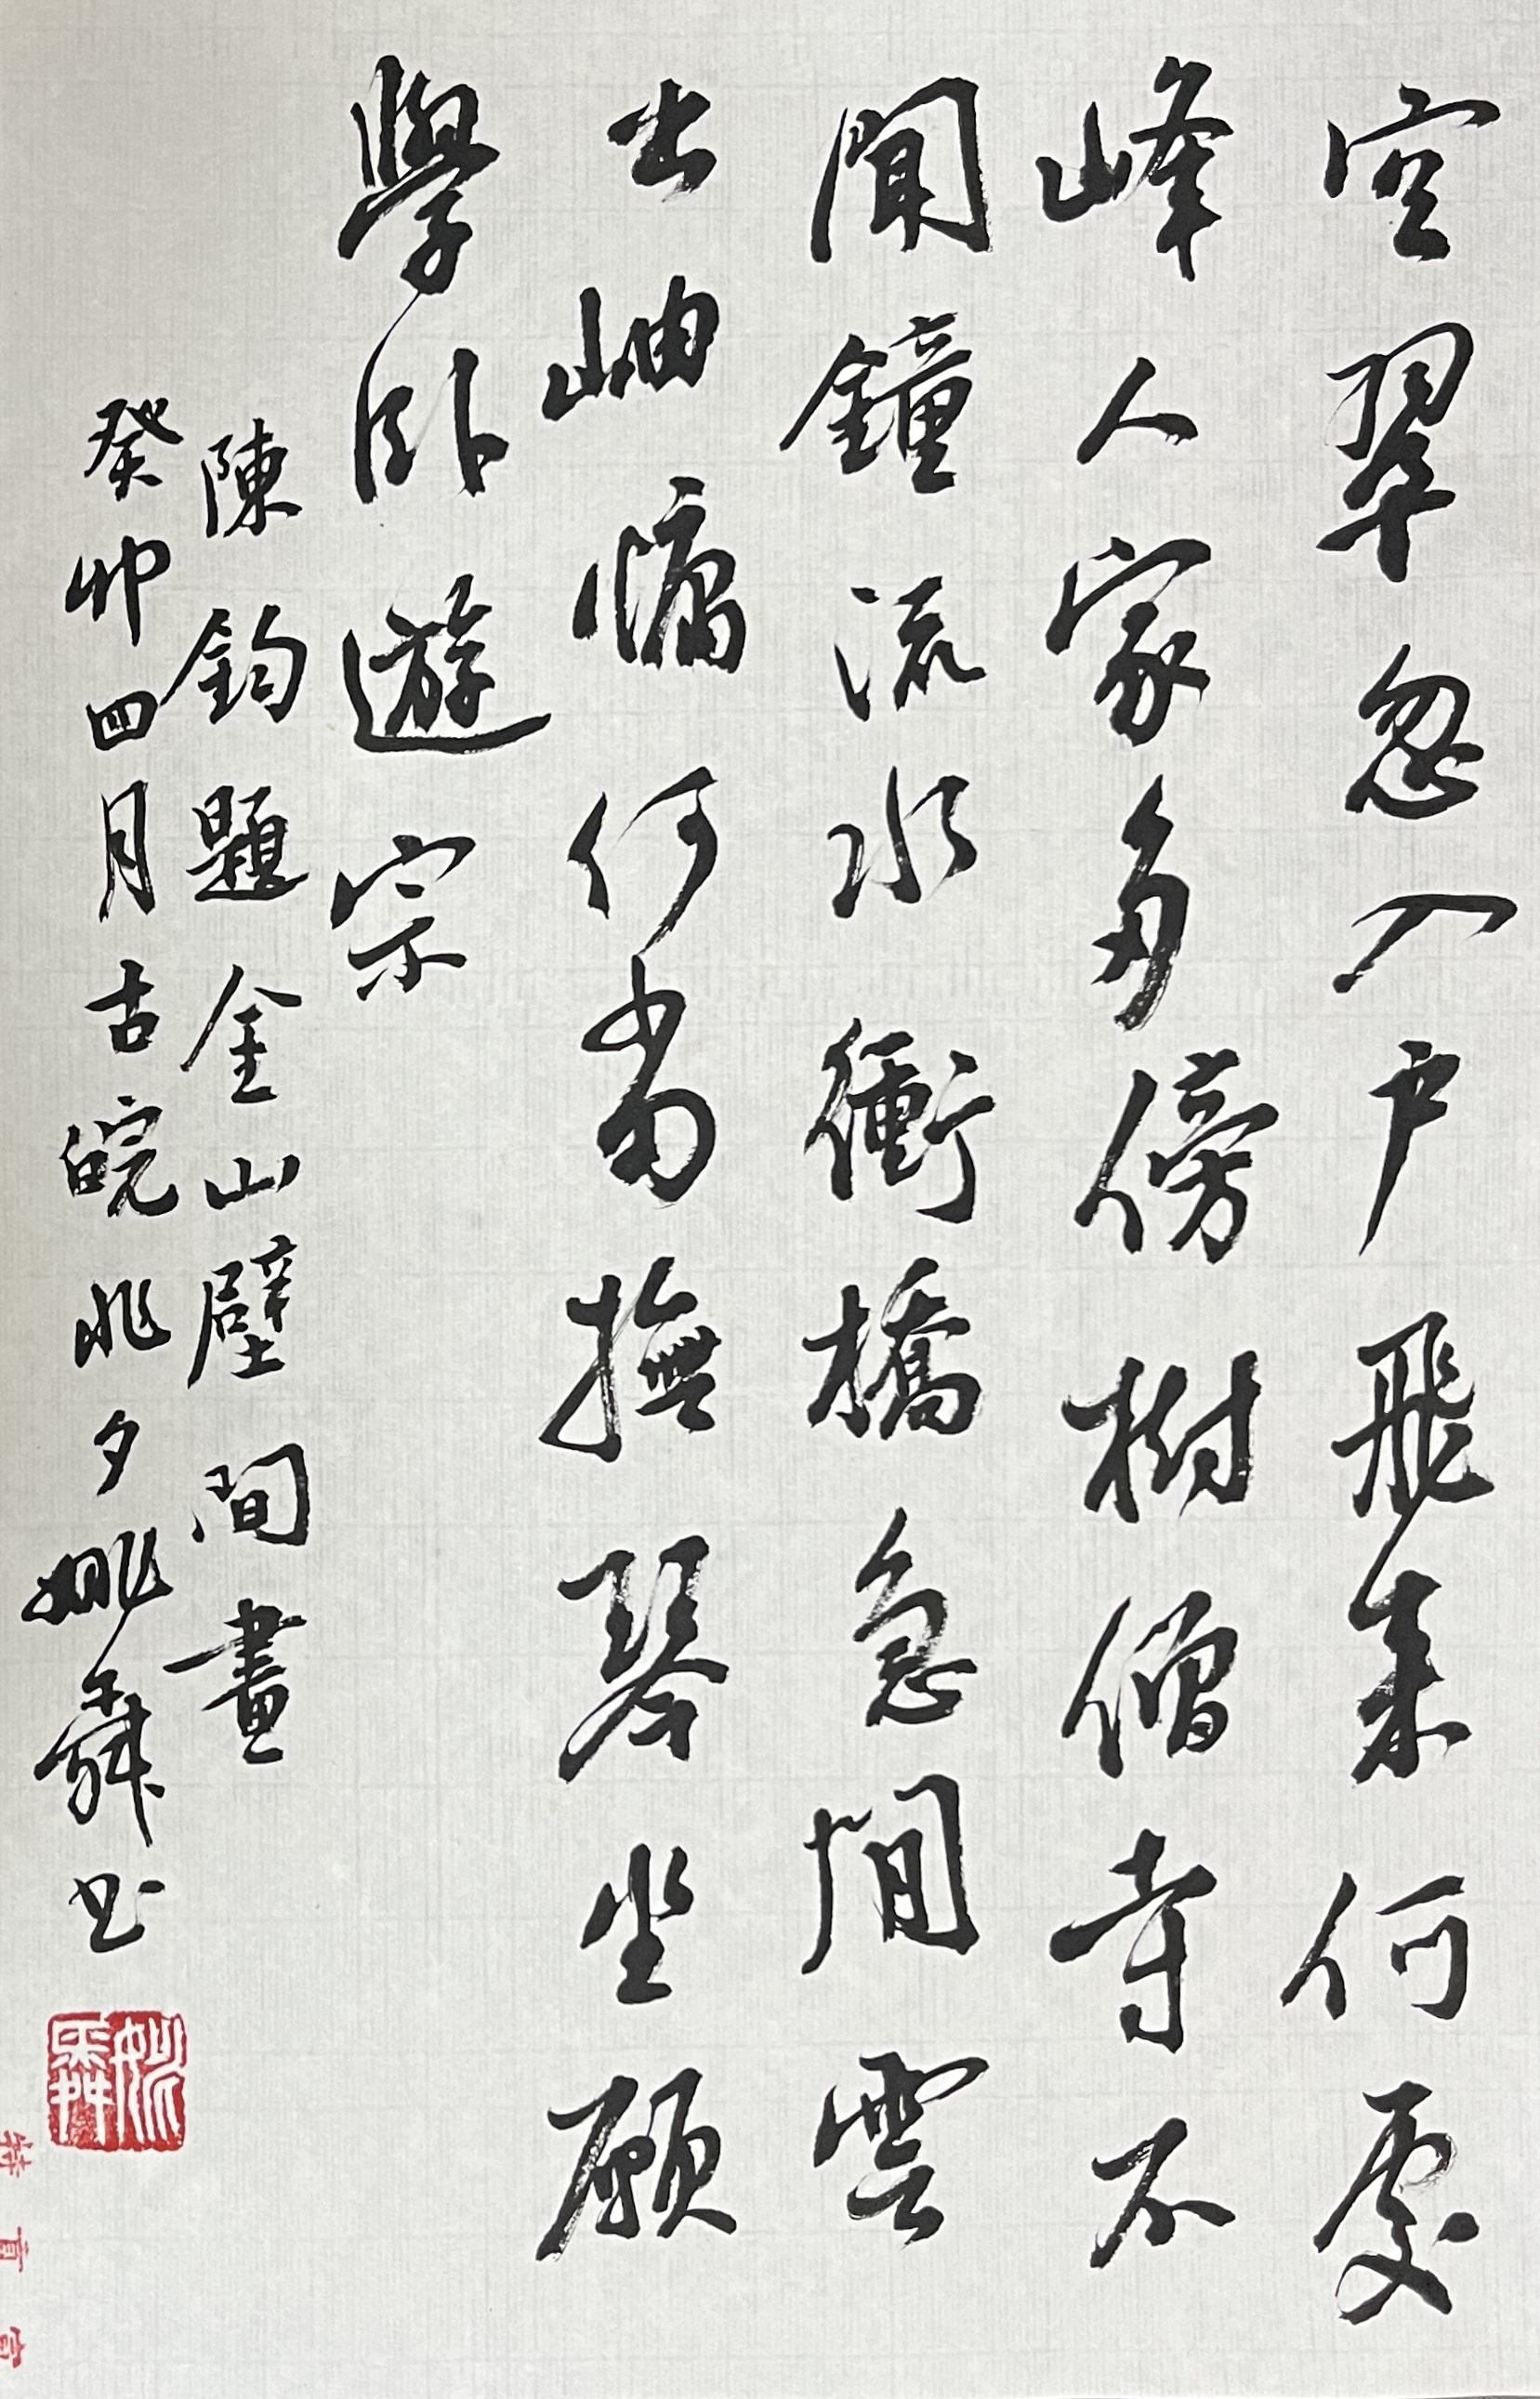 空翠忽入户飛来何處
峰人家多傍樹僧寺不
聞鐘流水衝橋急閒雲
出岫慵何當撫琴坐願
學卧遊宗
陳鈞題金山壁間畫
癸卯四月古皖兆夕姚舜书